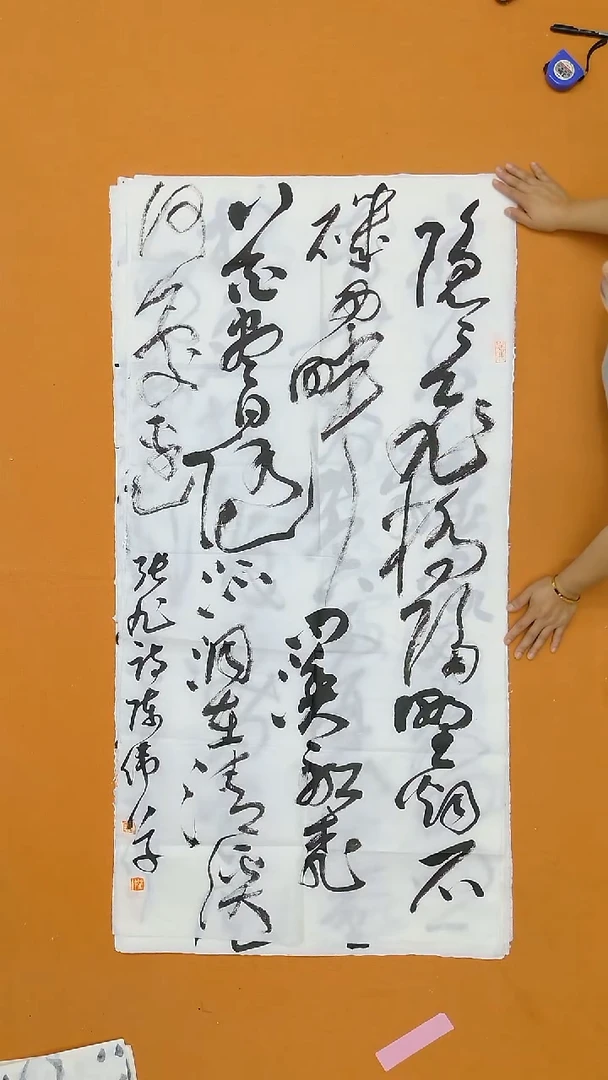 隐隐飞桥隔野烟石
矶西畔问渔船桃
花尽日随流水洞在清溪
何处边
张旭诗陈伟字